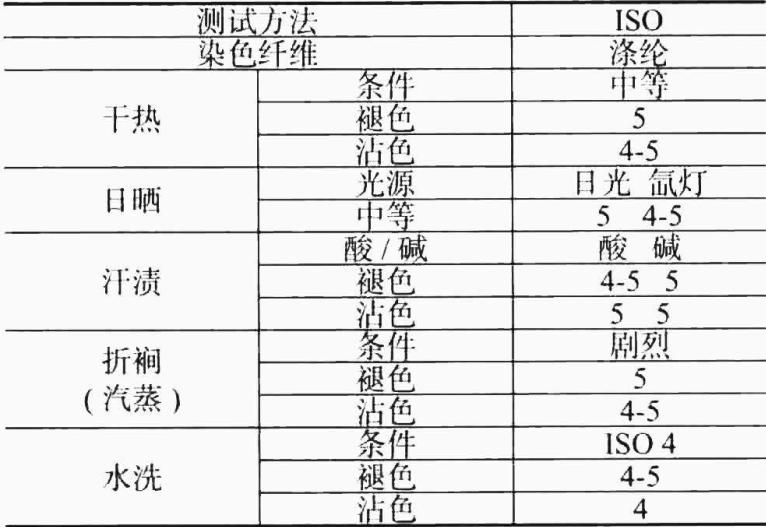 测试方法 ISO
染色纤维 涤纶
干热 条件 中等
褪色 5
沾色 4-5
日晒 光源 日光 氙灯
中等 5 4-5
汗渍 酸 / 碱 酸 碱
褪色 4-5 5
沾色 5 5
折裥 条件 剧烈
(汽蒸) 褪色 5
沾色 4-5
水洗 条件 ISO 4
褪色 4-5
沾色 4